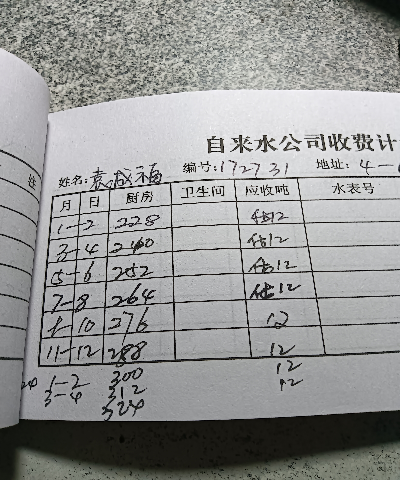 自来水公司收费计
姓名:袁成福 编号:172731 地址:4-
月 日 厨房 卫生间 应收吨 水表号
1-2 228 估12
3-4 240 估12
5-6 252 估12
7-8 264 估12
9-10 276 12
11-12 288 12
1-2 300 12
3-4 312 12
324